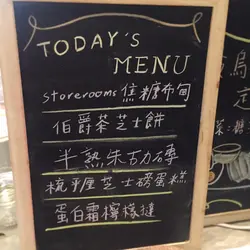 TODAY'S
MENU
storerooms 焦糖布甸
伯爵茶芝士餅
半熟朱古力磚
梳乎厘芝士磅蛋糕
蛋白霜檸檬撻